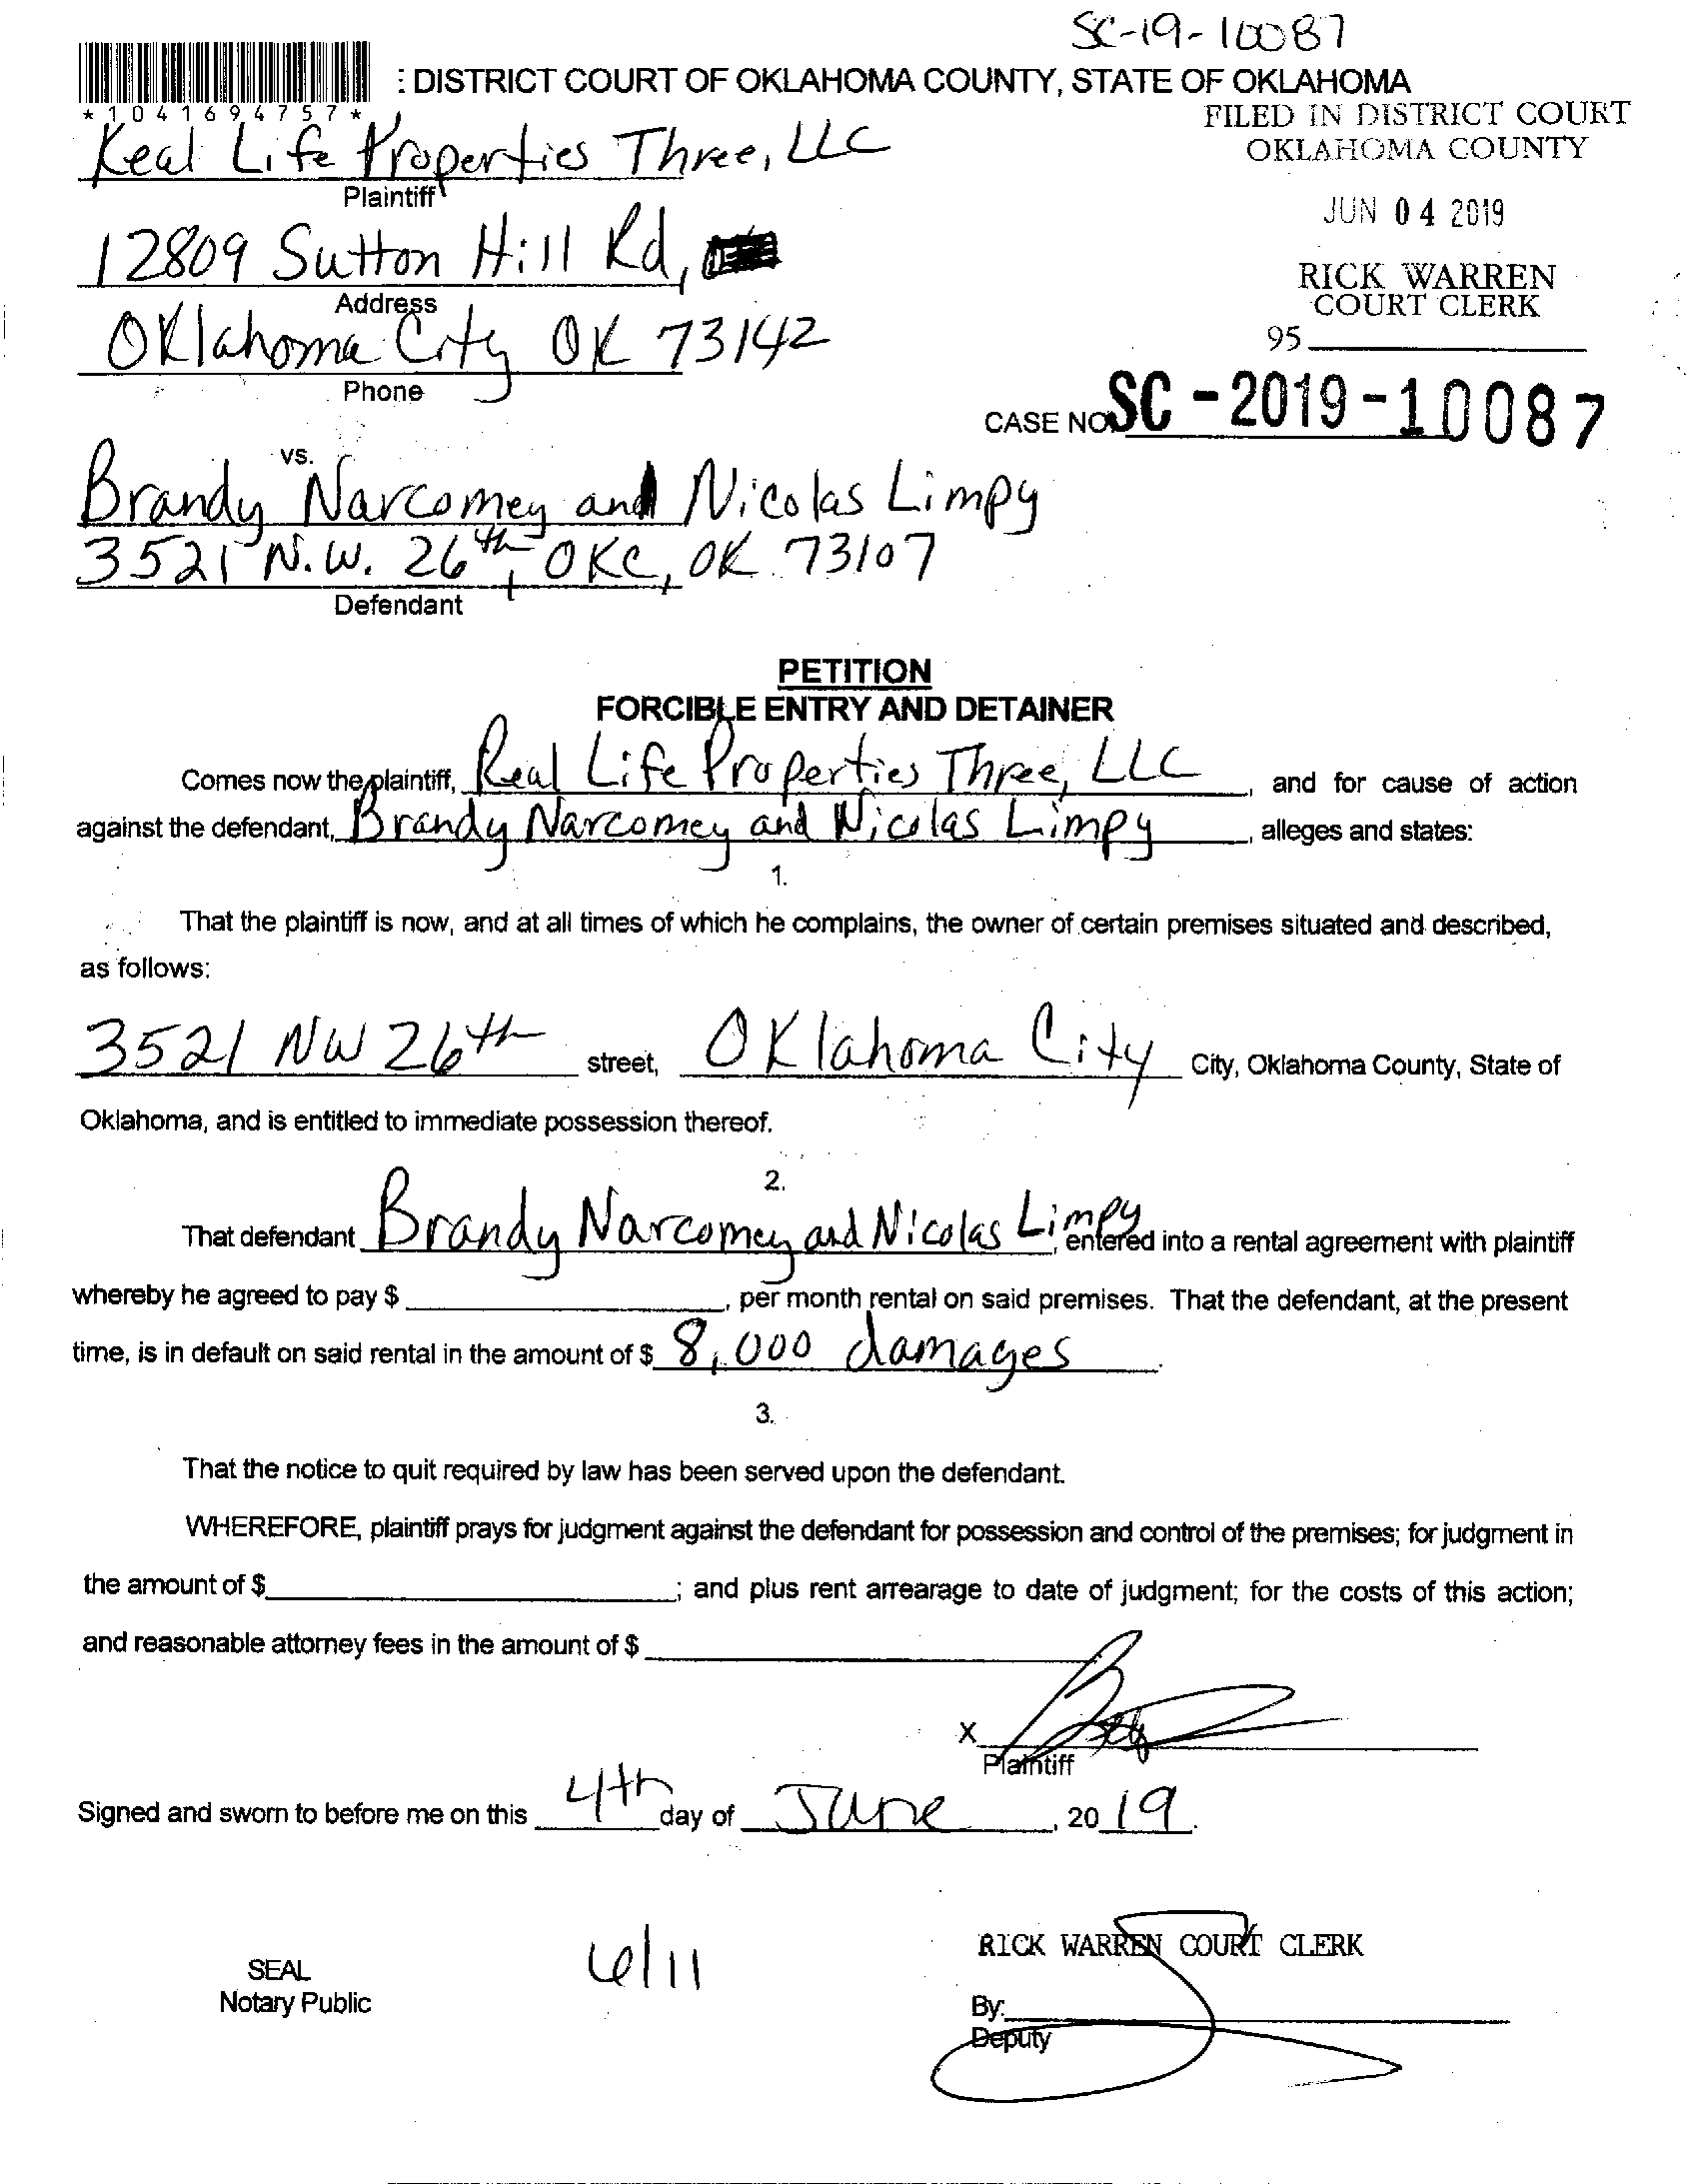 SC-19-10087
: DISTRICT COURT OF OKLAHOMA COUNTY, STATE OF OKLAHOMA
*1041694757*
FILED IN DISTRICT COURT
OKLAHOMA COUNTY
Real Life Properties Three, LLC
Plaintiff
JUN 04 2019
12809 Sutton Hill Rd,
Address
RICK WARREN
COURT CLERK
Oklahoma City OK 73142
95
Phone
CASE NO. SC-2019-10087
vs.
Brandy Narcomey and Nicolas Limpy
3521 N.W. 26th, OKC, OK 73107
Defendant
PETITION
FORCIBLE ENTRY AND DETAINER
Comes now the plaintiff, Real Life Properties Three, LLC, and for cause of action
against the defendant, Brandy Narcomey and Nicolas Limpy, alleges and states:
1.
That the plaintiff is now, and at all times of which he complains, the owner of certain premises situated and described,
as follows:
3521 NW 26th street, Oklahoma City City, Oklahoma County, State of
Oklahoma, and is entitled to immediate possession thereof.
2.
That defendant Brandy Narcomey and Nicolas Limpy, entered into a rental agreement with plaintiff
whereby he agreed to pay $ , per month rental on said premises. That the defendant, at the present
time, is in default on said rental in the amount of $ 8,000 damages.
3.
That the notice to quit required by law has been served upon the defendant.
WHEREFORE, plaintiff prays for judgment against the defendant for possession and control of the premises; for judgment in
the amount of $ ; and plus rent arrearage to date of judgment; for the costs of this action;
and reasonable attorney fees in the amount of $
X
Plaintiff
Signed and sworn to before me on this 4th day of June, 2019.
RICK WARREN COURT CLERK
SEAL
6/11
Notary Public
By:
Deputy